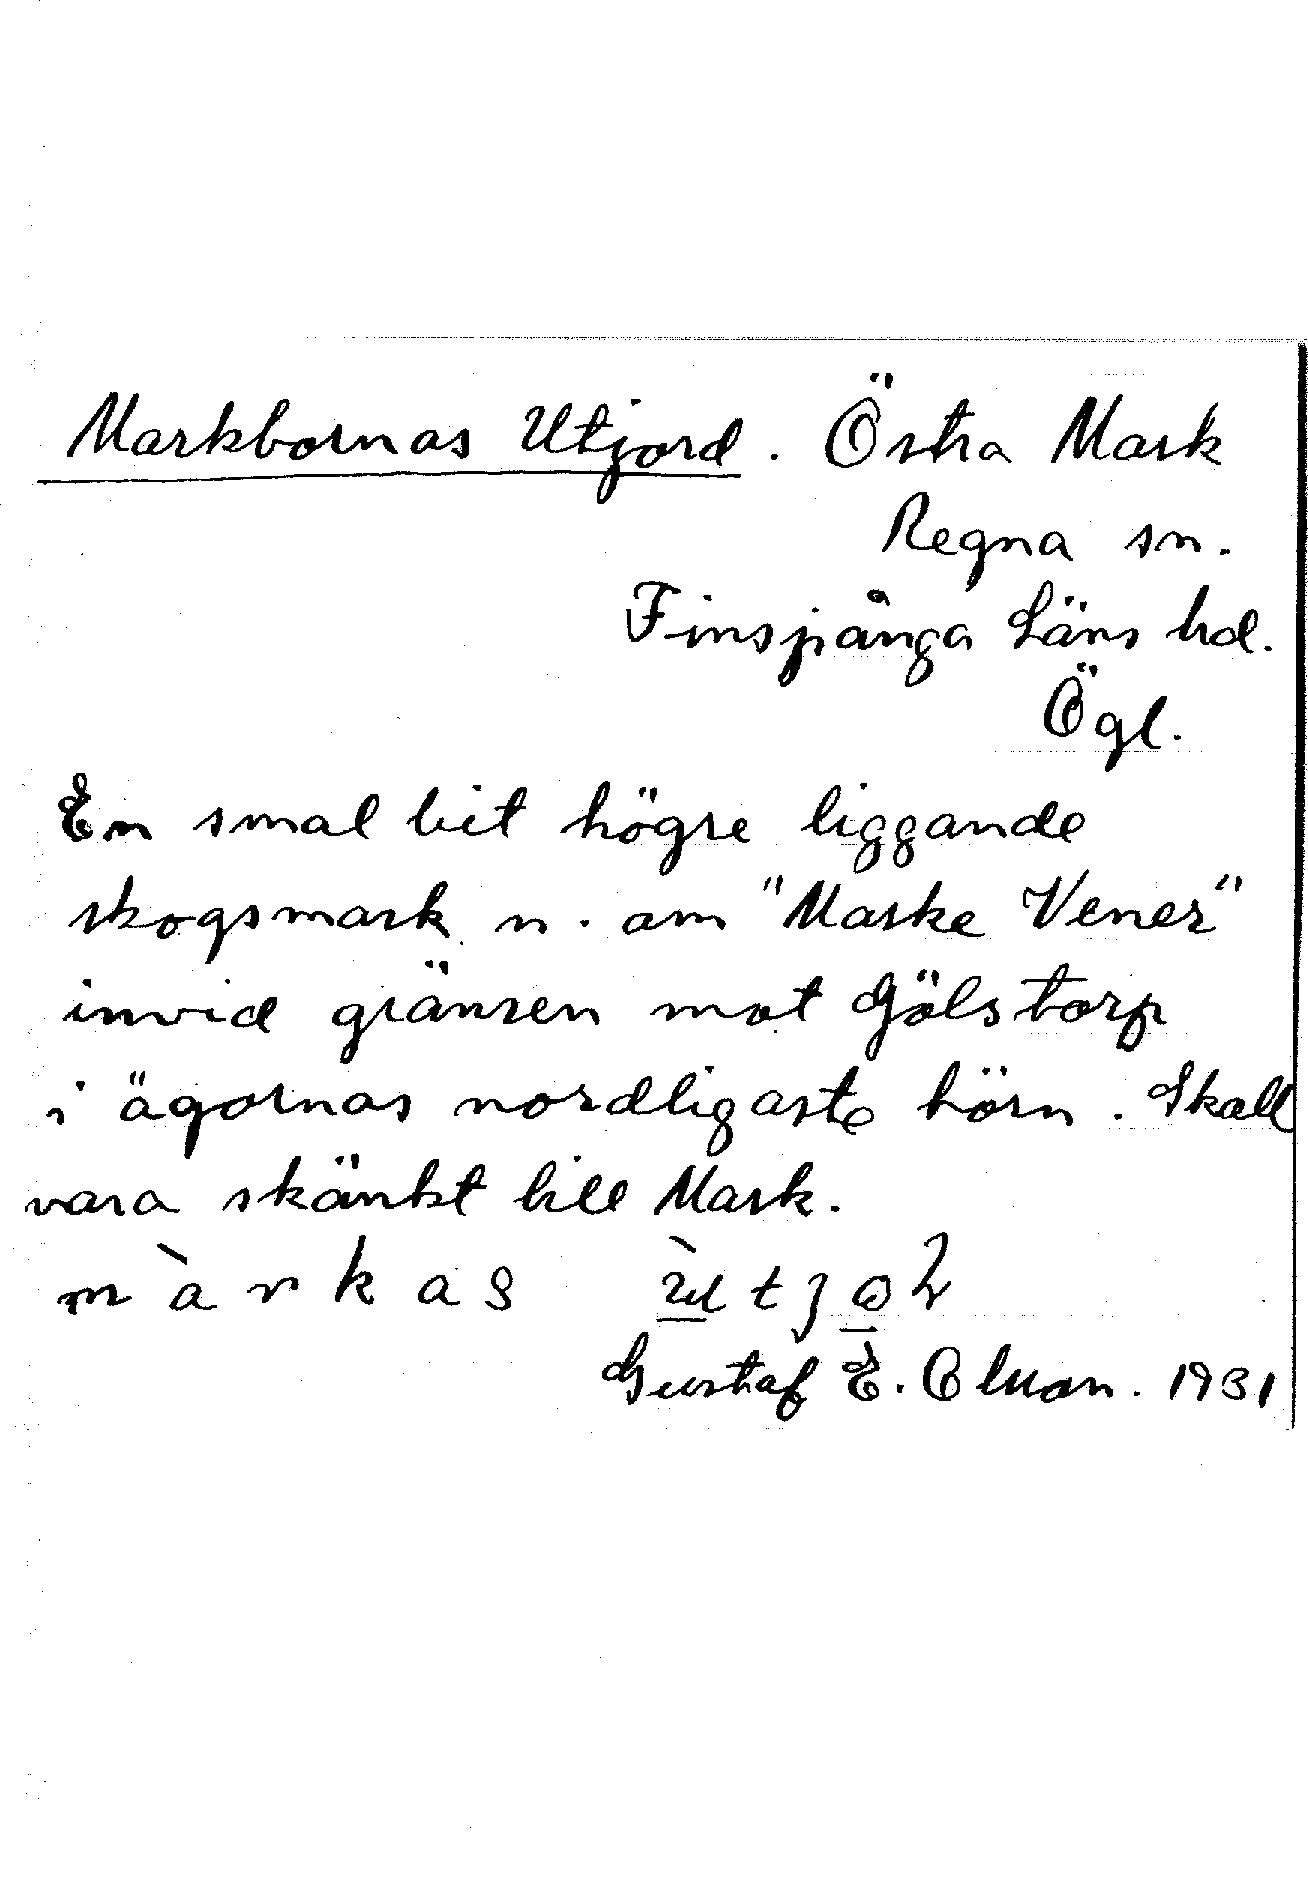 Markbornas Utjord. Östra Mark
Regna sn.
Finspånga Läns hd.
Ögl.
En smal bit högre liggande
skogsmark n. om "Marke Vener"
invid gränsen mot Gölstorp
i ägornas nordligaste hörn. Skall
vara skänkt till Mark.
m à r k a s
Gustaf E. 1931